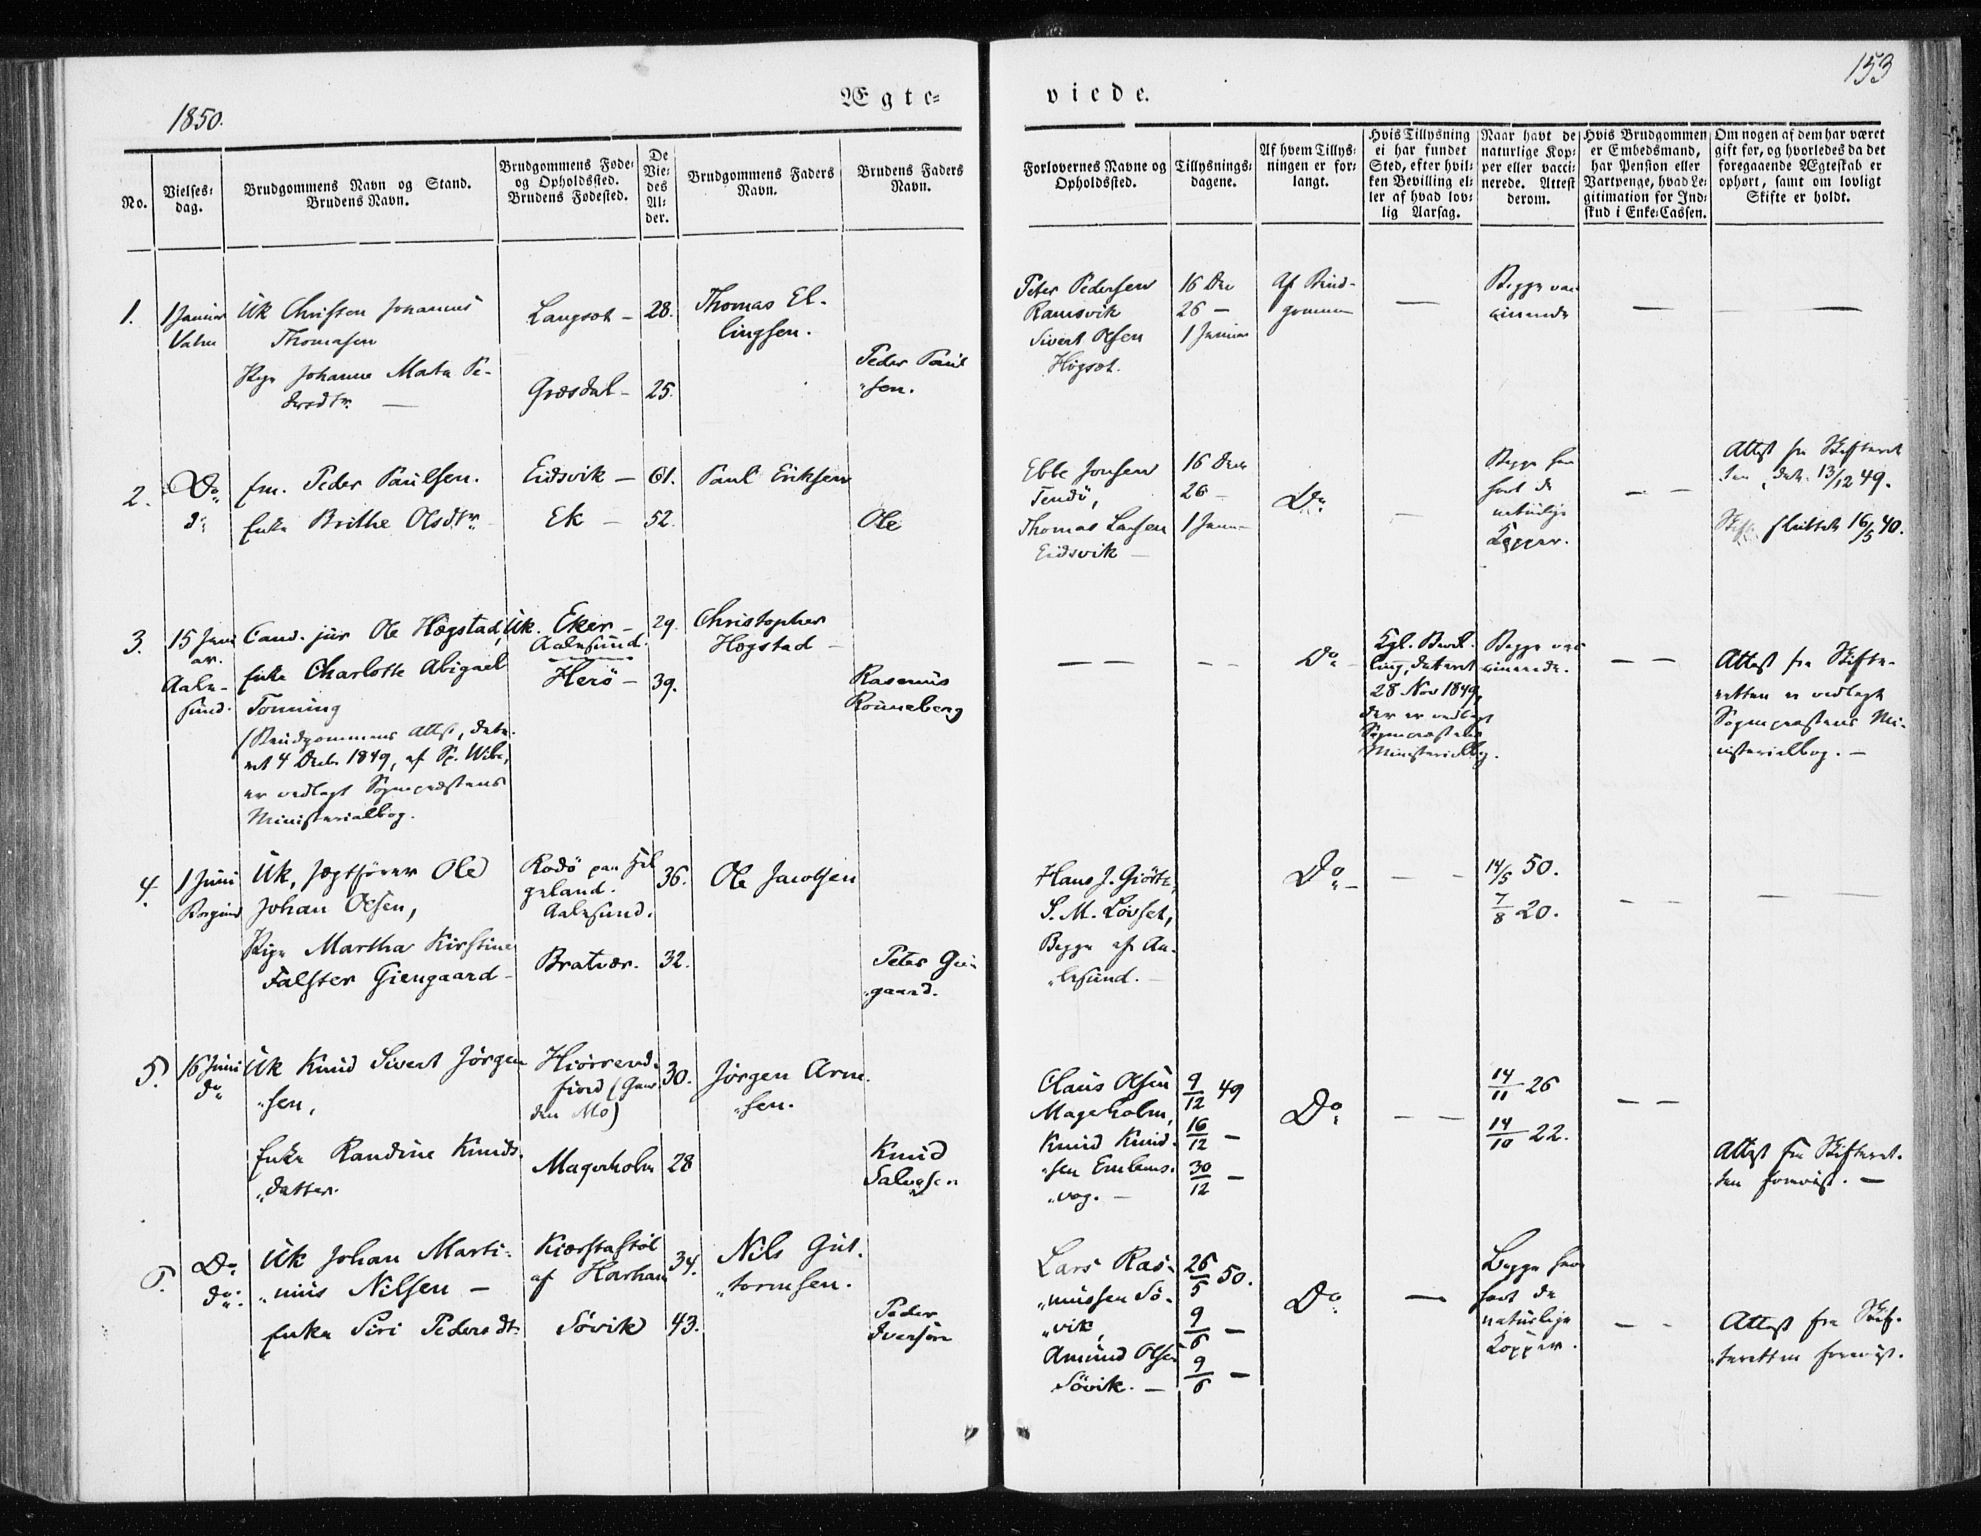 153
1850.
Ægte-
viede.
No.
Vielses-
dag.
Brudgommens Navn og Stand.
Brudens Navn.
Brudgommens Føde-
og Opholdssted.
Brudens Fødested.
De
Vie-
des
Al-
der.
Brudgommens Faders
Navn.
Brudens Faders
Navn.
Forlovernes Navne og
Opholdssted.
Tillysnings-
dagene.
Af hvem Tillys-
ningen er for-
langt.
Hvis Tillysning
ei har fundet
Sted, efter hvil-
ken Bevilling el-
ler af hvad lov-
lig Aarsag.
Naar havt de
naturlige Kop-
per eller vacci-
nerede. Attest
derom.
Hvis Brudgommen
er Embedsmand,
har Pension eller
Vartpenge, hvad Le-
gitimation for Ind-
skud i Enke-Cassen.
Om nogen af dem har været
gift før, og hvorledes da det
foregaaende Ægteskab er
ophørt, samt om lovligt
Skifte er holdt.
1.
1 Januar
Uk Christen Johannes
Thomasen
Pige Johanne Mata Pe-
dersdtr. —
Langset —
Græsdal —
28.
25.
Thomas El-
lingsen.
Peder Paul
"sen.
Peter Pedersen
Ramsvik
Sivert Olsen
Högset.
16 Dec
26 —
1 Januar
Af Brud-
gommen
—
Begge vac
cinerede
—
—
2.
Do
do
Em. Peder Paulsen.
Enke Brithe Olsdtr
Eidsvik —
Ek —
61.
52.
Paul Eriksen
Ole
Ebbe Jonsen
Tendö,
Thomas Larsen
Eidsvik —
16 Decb
26 —
1 Janu
Do
—
Begge har
havt de
naturlige
Kopper.
— —
Attest fra Skifteret
ten, dat. 13/12 49.
Skifte sluttet 16/5 40.
3.
15 Janu
ar.
Aale-
sund.
Cand. jur Ole Høgstad, Uk.
Enke Charlotte Abigael
Tonning
(Brudgommens Attest, date-
ret 4 Decb. 1849, af Sp. Wibe,
er vedlagt Sognepræstens
Ministerialbog.
Eker —
Aalesund.
Herö —
29.
39.
Christopher
Høgstad —
Rasmus
Rönneberg
— —
— —
Do
Kgl. Bevil-
ling, dateret
28 Nov 1849,
der er vedlagt
Sognepræstens
Ministerialbog.
Begge vac
cinerede.
— —
Attest fra Skifte-
retten er vedlagt
Sognepræstens Mi-
nisterialbog. —
4.
1 Juni
Borgund
Uk, Jægtfører Ole
Johan Olsen,
Pige Martha Kirstine
Falster Giengaard —
Rodö paa Hel
geland.
Aalesund.
Bratvær.
36.
32.
Ole Jacobsen
Peter Gien
"gaard.
Hans J. Giörtz,
S. M. Lövset,
Begge af Aa-
"lesund. —
Do —
— —
14/5 50.
7/8 20.
— —
— —
5.
16 Juni
do
Uk Knud Sivert Jörgen
"sen,
Enke Randine Knuds-
"datter.
Hiörrend-
fiord (Gaar
den Mo)
Mageholm
30.
28
Jörgen Arne-
"sen.
Knud
Salvesen
Claus Olsen
Mageholm,
Knud Knud-
"sen Emlems-
"vog. —
9/12 49
16/12 —
30/12 —
Do
— —
14/11 26
14/10 22.
— —
Attest fra Skifteret-
ten forevist. —
6.
Do
do
Uk Johan Marti-
"nus Nilsen —
Enke Siri Pedersdtr
Kiærstastöl
af Harham
Sövik
34.
43.
Nils Gut-
"tormsen.
Peder
Iversen
Lars Ras-
"mussen Sö-
"vik,
Amund Olsen
Sövik. —
26/5 50.
9/6 —
9/6 —
Do
—
Begge have
havt de
naturlige
Kopper.
— —
Attest fra Skif-
teretten forevist.